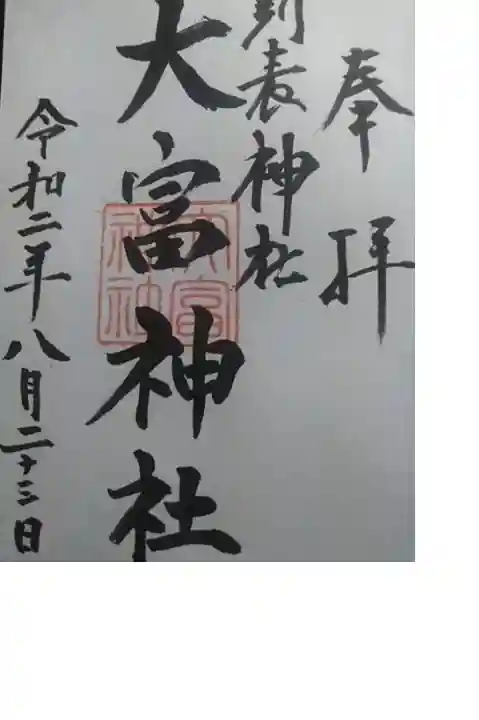 奉拝
別表神社
大富神社
大富神社
令和二年八月二十三日